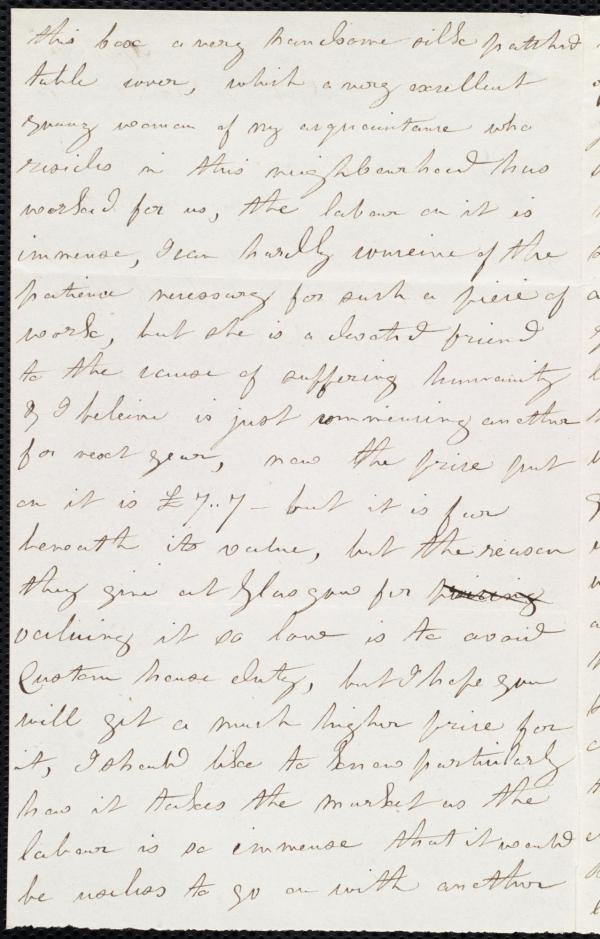 this box a very handsome silk patched
table cover, which a very excellent
young woman of my acquaintance who
resides in this neighbourhood has
worked for us, the labour on it is
immense, I can hardly conceive of the
patience necessary for such a piece of
work, but she is a devoted friend
to the cause of suffering humanity
& I beleive is just commencing another
for next year, now the price put
on it is £7..7 – but it is far
beneath its value, but the reason
they give at Glasgow for pricing
valuing it so low is to avoid
Custom house duty, but I hope you
will get a much higher price for
it, I should like to know particularly
how it takes the market as the
labour is so immense that it would
be useless to go on with another